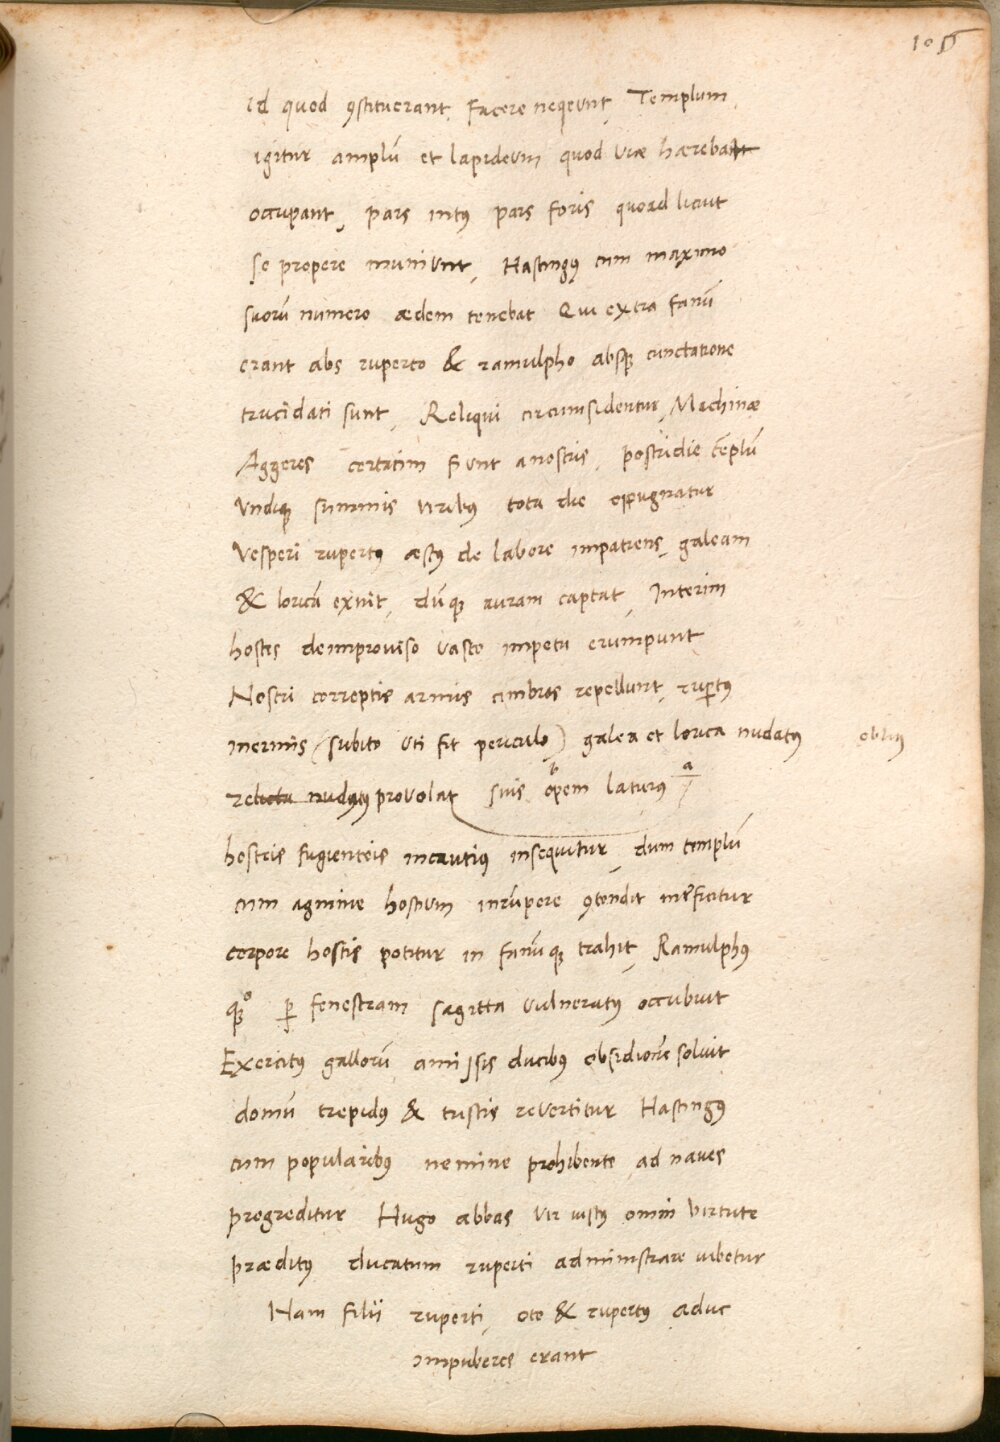 106
id quod ꝯstituerant, facere neqeunt, Templum
igitur amplū et lapideum quod viæ hærebat
occupant, pars intꝰ pars foris quoad licuit
se propere muniunt, Hastingꝰ cum maximo
suorū numero ædem tenebat Qui extra fanū
erant abs ruperto & ramulpho absqꝫ cunctatione
trucidati sunt, Reliqui circumsidentur, Machinæ
Aggeres certatim fiunt a nostris, postridie tēplū
Vndiqꝫ summis viribꝰ tota die oppugnatur
Vesperi rupertꝰ æstꝰ de labore impatiens, galeam
& loricā exuit, dūqꝫ auram captat, Interim
hostes deimproviso vasto impetu erumpunt
Nostri correptis armis cimbros repellunt, rupertꝰ
inermis (subito uti fit periculo) galea et lorica nudatꝰ
relicta nudatꝰ provolat suis opem laturꝰ
hostis fugienteis incautius insequitur, dum templū
cum agmine hostium inrūpere ꝯtendit interficitur
corpore hostis potitur in fanūqꝫ trahit, Ramulphꝰ
qꝫº ꝑ fenestram sagitta vulneratꝰ occubuit
Exercitꝰ gallorū amissis ducibꝰ obsidionē soluit
domū trepidꝰ & tristis revertitur Hastingꝰ
cum popularibꝰ nemine prohibente ad naves
progreditur Hugo abbas vir iustꝰ omni virtute
præditꝰ ducatum ruperti administrare iubetur
Nam filii ruperti, oto & rupertꝰ aduc
impuberes erant